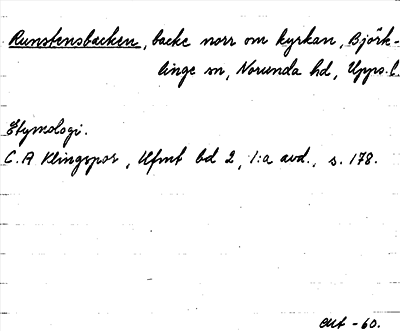 Runstensbacken, backe norr om kyrkan, Björk-
linge sn, Norunda hd, Upps. l.
Etymologi.
C. A Klingspor, Ufmt bd 2, 1:a avd., s. 178.
-60.